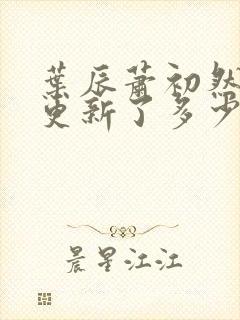 葉辰蕭初然
更新了多少
晨星江江